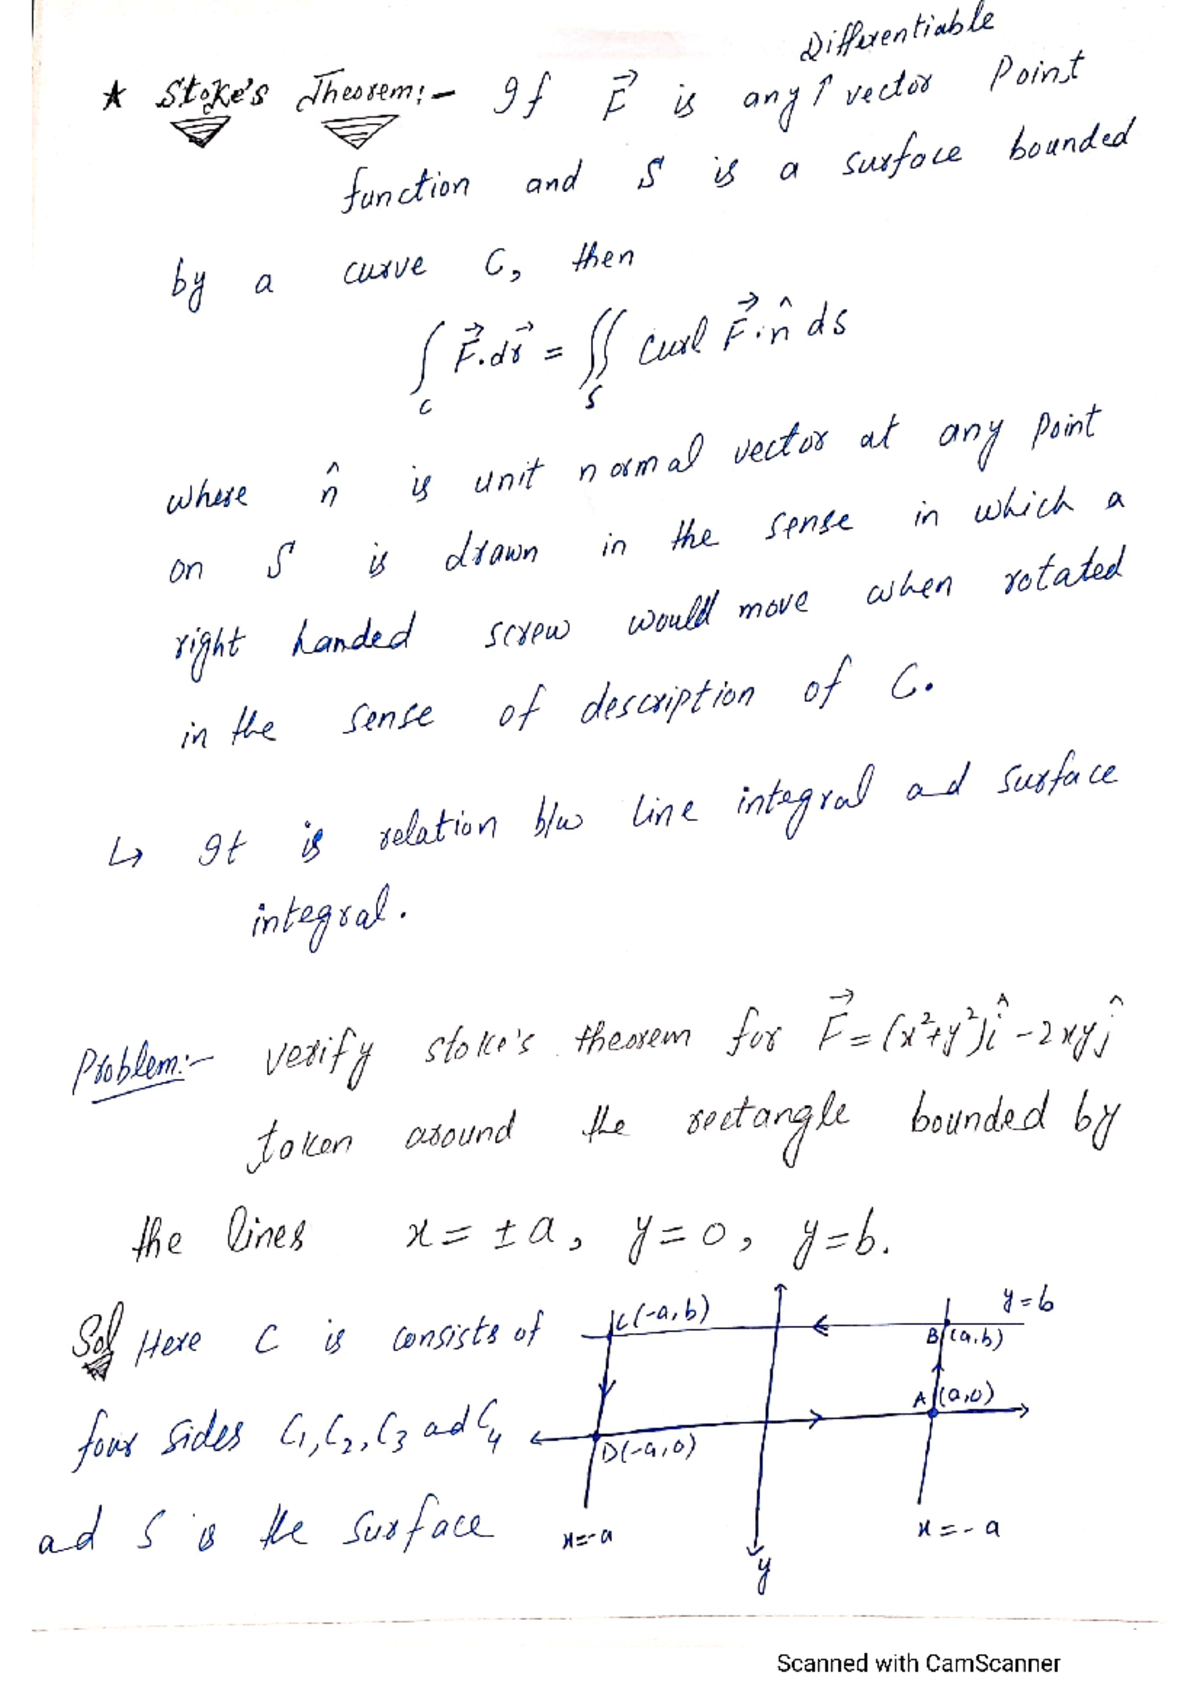 Differentiable
★ Stoke's Theorem:- If F⃗ is any ↑ vector Point
function and S is a surface bounded
by a curve C, then
∫_C F⃗.dr⃗ = ∬_S Curl F⃗.n̂ ds
where n̂ is unit normal vector at any point
on S is drawn in the sense in which a
right handed screw would move when rotated
in the sense of description of C.
↳ It is relation b/w line integral ad surface
integral.
Problem:- verify stoke's theorem for F⃗ = (x²+y²)î - 2xyĵ
taken around the rectangle bounded by
the lines x = ±a, y=0, y=b.
Sol Here C is consists of
four sides C₁, C₂, C₃ ad C₄
ad S is the surface
C(-a,b)
y=b
B(a,b)
A(a,0)
D(-a,0)
x=-a
x=-a
y
Scanned with CamScanner